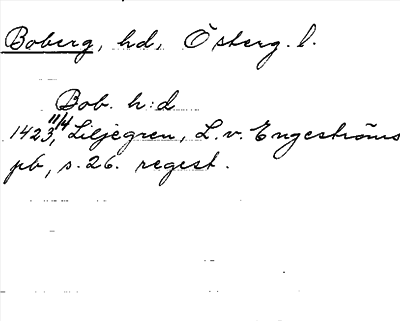 Boberg, hd, Österg. l.
Bob. h:d
1423 11/4, Liljegren, L. v. Engeströms
pb, s. 26. regest.